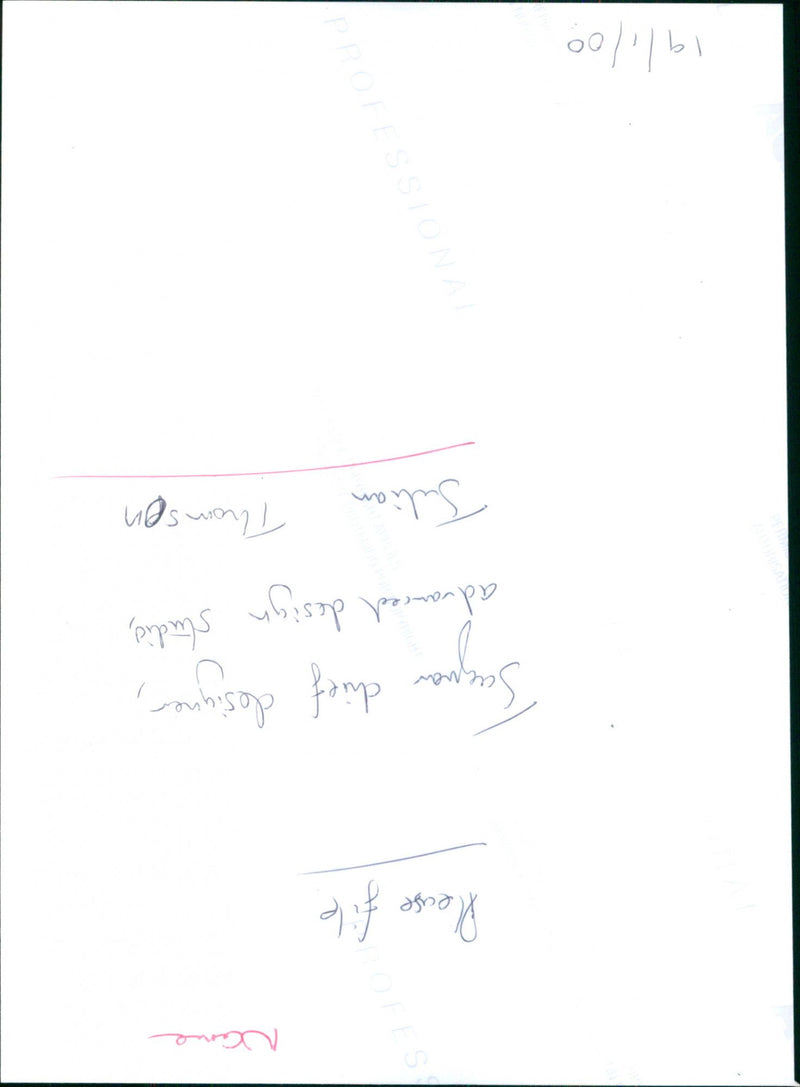 Please file
Jaguar chief designer,
advanced design studio,
Julian Thomson
19/1/00
PROFESSIONAL
PROFESS